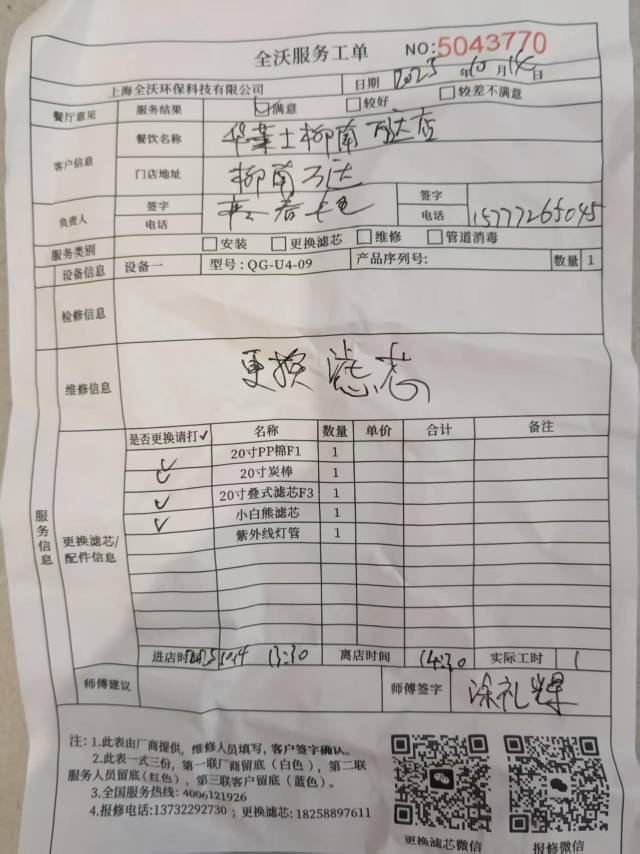 全沃服务工单 NO:5043770
上海全沃环保科技有限公司 日期 2025年10月14日
餐厅意见 服务结果 满意 较好 较差不满意
客户信息 餐饮名称 华莱士柳南万达店
门店地址 柳南万达
负责人 签字 签字
电话 电话 15777265045
服务类别 安装 更换滤芯 维修 管道消毒
设备信息 设备一 型号:QG-U4-09 产品序列号: 数量 1
检修信息
维修信息 更换滤芯
服务信息
更换滤芯/配件信息
是否更换请打✓ 名称 数量 单价 合计 备注
20寸PP棉F1 1
✓ 20寸炭棒 1
✓ 20寸叠式滤芯F3 1
✓ 小白熊滤芯 1
紫外线灯管 1
进店时间 2025 10.14 13:30 离店时间 14:30 实际工时 1
师傅建议 师傅签字 涂礼
注: 1.此表由厂商提供, 维修人员填写, 客户签字确认。
2.此表一式三份, 第一联厂商留底(白色), 第二联
服务人员留底(红色), 第三联客户留底(蓝色)。
3.全国服务热线: 4006121926
4.报修电话:13732292730; 更换滤芯: 18258897611
更换滤芯微信 报修微信